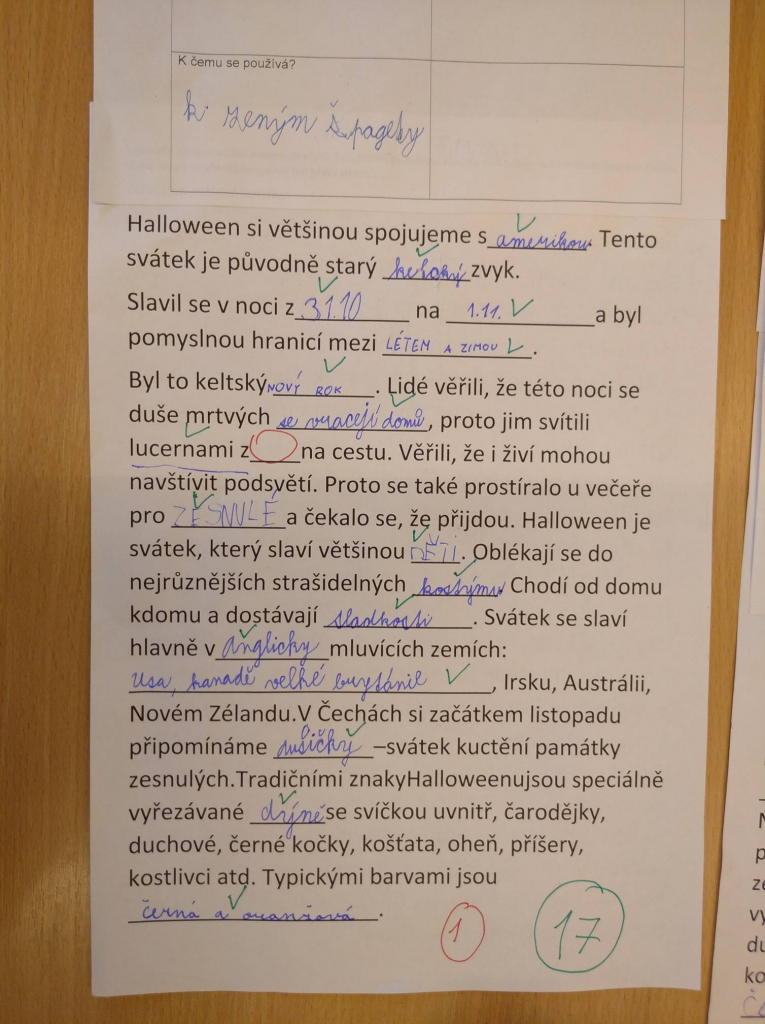 K čemu se používá?
k zeným špagety
Halloween si většinou spojujeme s amerikou. Tento
svátek je původně starý keltský zvyk.
Slavil se v noci z 31.10 na 1.11. a byl
pomyslnou hranicí mezi LÉTEM A ZIMOU.
Byl to keltský NOVÝ ROK. Lidé věřili, že této noci se
duše mrtvých se vracejí domů, proto jim svítili
lucernami z na cestu. Věřili, že i živí mohou
navštívit podsvětí. Proto se také prostíralo u večeře
pro ZESNULÉ a čekalo se, že přijdou. Halloween je
svátek, který slaví většinou DĚTI. Oblékají se do
nejrůznějších strašidelných kostýmu. Chodí od domu
kdomu a dostávají sladkosti. Svátek se slaví
hlavně v anglicky mluvících zemích:
Usa, kanadě velké brytánie, Irsku, Austrálii,
Novém Zélandu.V Čechách si začátkem listopadu
připomínáme dušičky –svátek kuctění památky
zesnulých.Tradičními znakyHalloweenujsou speciálně
vyřezávané dýně se svíčkou uvnitř, čarodějky,
duchové, černé kočky, košťata, oheň, příšery,
kostlivci atd. Typickými barvami jsou
černá a oranžová.
1 17